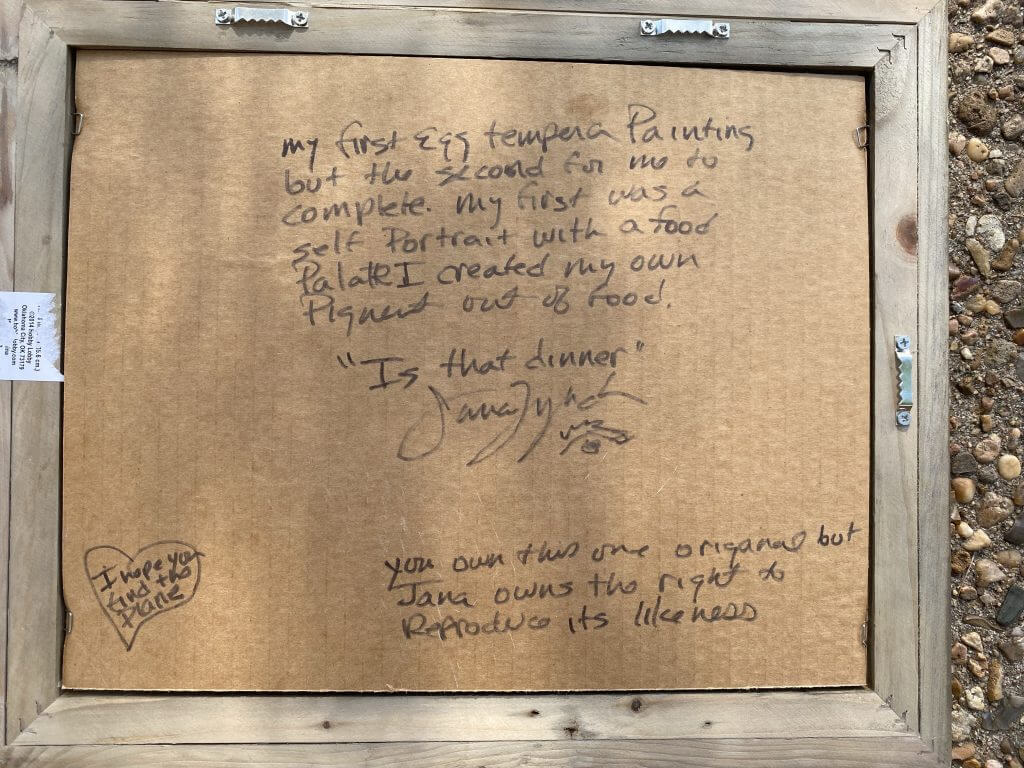 my first Egg tempera Painting
but the second for me to
complete. My first was a
self Portrait with a food
Palatte I created my own
Pigment out of food.
"Is that dinner"
Jana Lynch
I hope you
find the
Plane
you own this one origanal but
Jana owns the right to
Reproduce its likeness
©2014 hobby Lobby
Oklahoma City, OK 73179